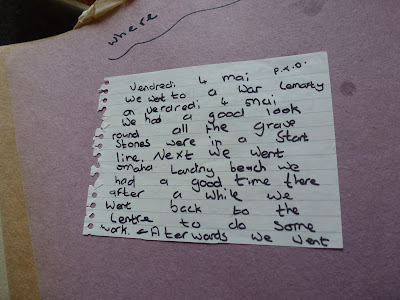 where
Vendredi 4 mai P.T.O.
We wet to a war Cematy
on verdredi 4 mai
We had a good look
round all the grave
Stones were in a Start
line. Next we went
omaha Landing beach we
had a good time there
after a while we
went back to the
Centre to do some
work. Afterwords we went